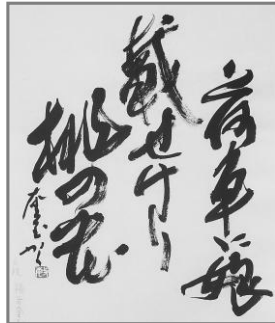 荷車に娘
載せけり
桃の花